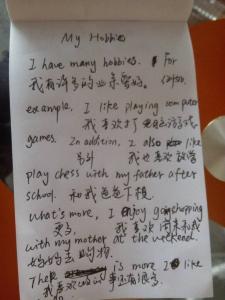 My Hobbies
I have many hobbies. For
我有许多的业余爱好。
example, I like playing computer
我喜欢打电脑游戏
games. In addition, I also like
我也喜欢放学
play chess with my father after
school. 和我爸爸下棋
What's more, I enjoy go shopping
更多, 我喜欢周末和我
with my mother at the weekend.
妈妈去购物.
There is more I like
我喜欢的事还有很多.